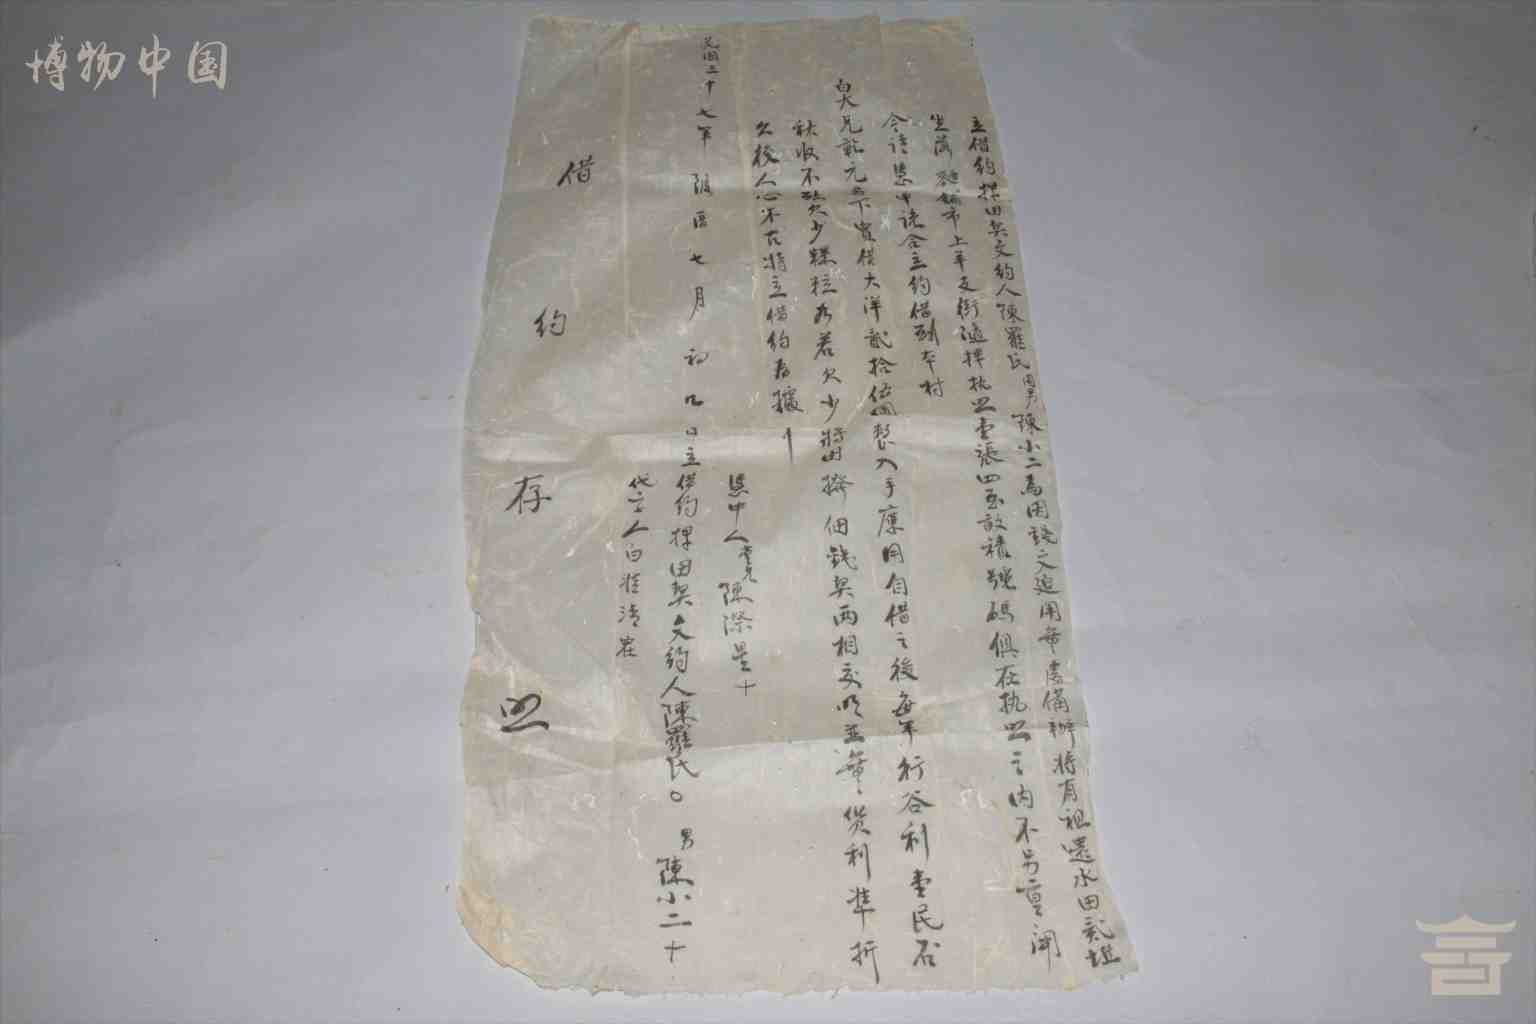 博物中国
立借约押田契文约人陳羅氏同男陳小二為因錢文逼用無處備辦將有祖遺水田貳坵
坐落 上平支街隨押執照壹張四至敨積號碼俱在執照之内不另重開
今請憑中説合立約借到本村
白大兄乾元名下實借大洋貳拾伍個整入手應用自借之後每年行谷利壹民石
秋收不欠少顆粒為若欠少將田撥佃錢契兩相交明並無貨利準折
久後人心不古將立借約為據
憑中人堂兄陳深星十
民國二十七年 陰曆七月初九日立借約押田契文約人陳羅氏〇 男陳小二十
代立人白 清
借約存照